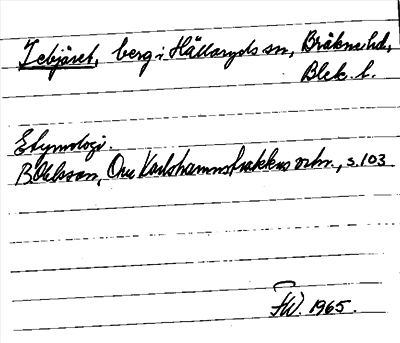 Tebjäret, berg i Hällaryds sn, Bräkne hd,
Blek. l.
Etymologi.
B Ohlsson, Om Karlshamnstraktens ortn., s. 103
FW. 1965.